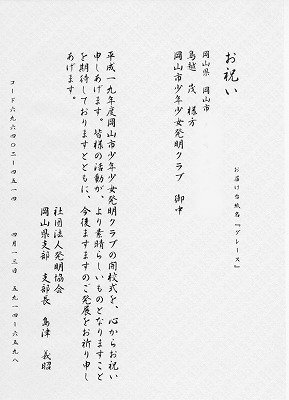 お祝い
お届け台紙名『グレース』
岡山県 岡山市
鳥越 茂 様方
岡山市少年少女発明クラブ 御中
平成一九年度岡山市少年少女発明クラブの開校式を、心からお祝い
申しあげます。皆様の活動が、より素晴らしいものとなりますこと
を期待しておりますとともに、今後ますますのご発展をお祈り申し
あげます。
社団法人発明協会
岡山県支部 支部長 島津 義昭
コード六九六四〇三ー四五一四 四月一三日 五九一四ー六五九八